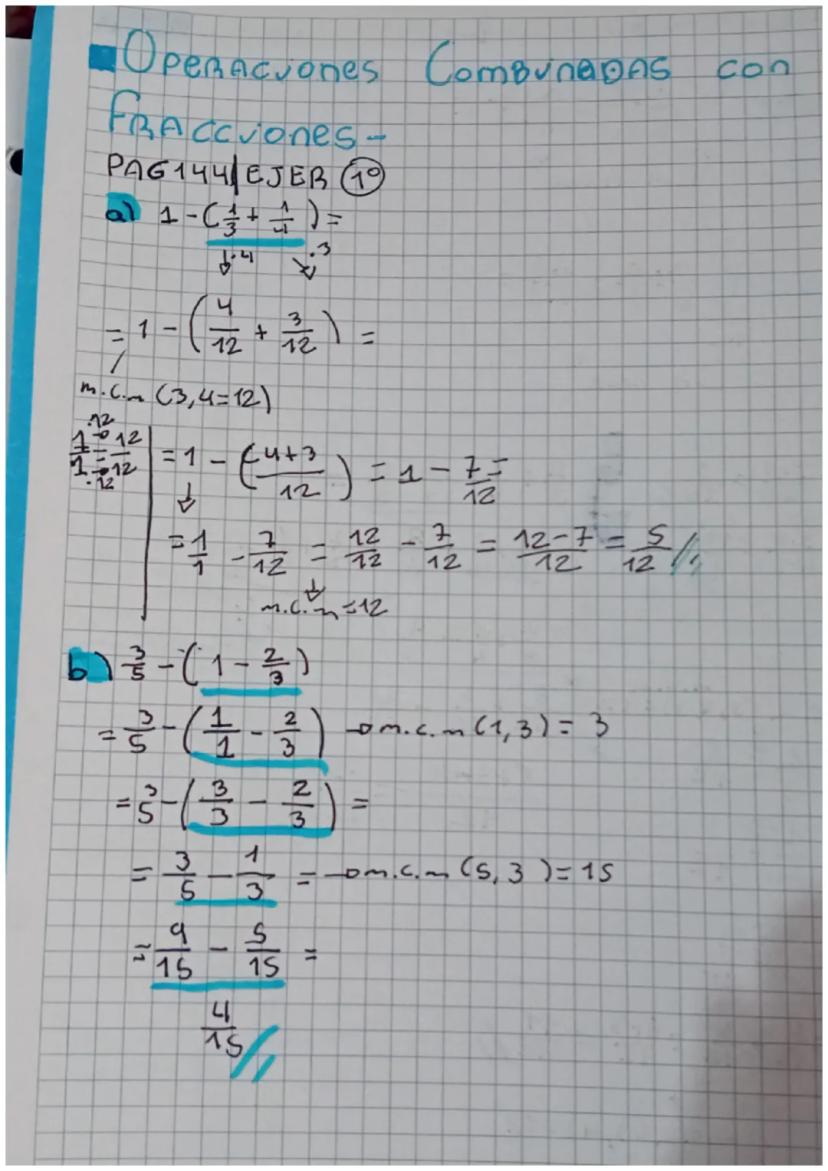 Operaciones Combinadas con
Fracciones-
PAG 144 | EJER 1º
a) 1 - (1/3 + 1/4) =
·4 ·3
= 1 - (4/12 + 3/12) =
m.c.m (3,4=12)
·12
1/1 = 12/12
·12
= 1 - (4+3/12) = 1 - 7/12 =
= 1/1 - 7/12 = 12/12 - 7/12 = 12-7/12 = 5/12 //
m.c.m = 12
b) 3/5 - (1 - 2/3)
= 3/5 - (1/1 - 2/3) → m.c.m (1,3) = 3
= 3/5 - (3/3 - 2/3) =
= 3/5 - 1/3 = → m.c.m (5,3) = 15
= 9/15 - 5/15 =
4/15 //